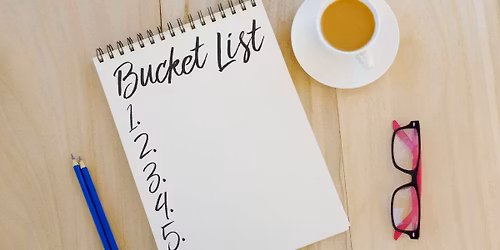 Bucket List
1.
2.
3.
4.
5.